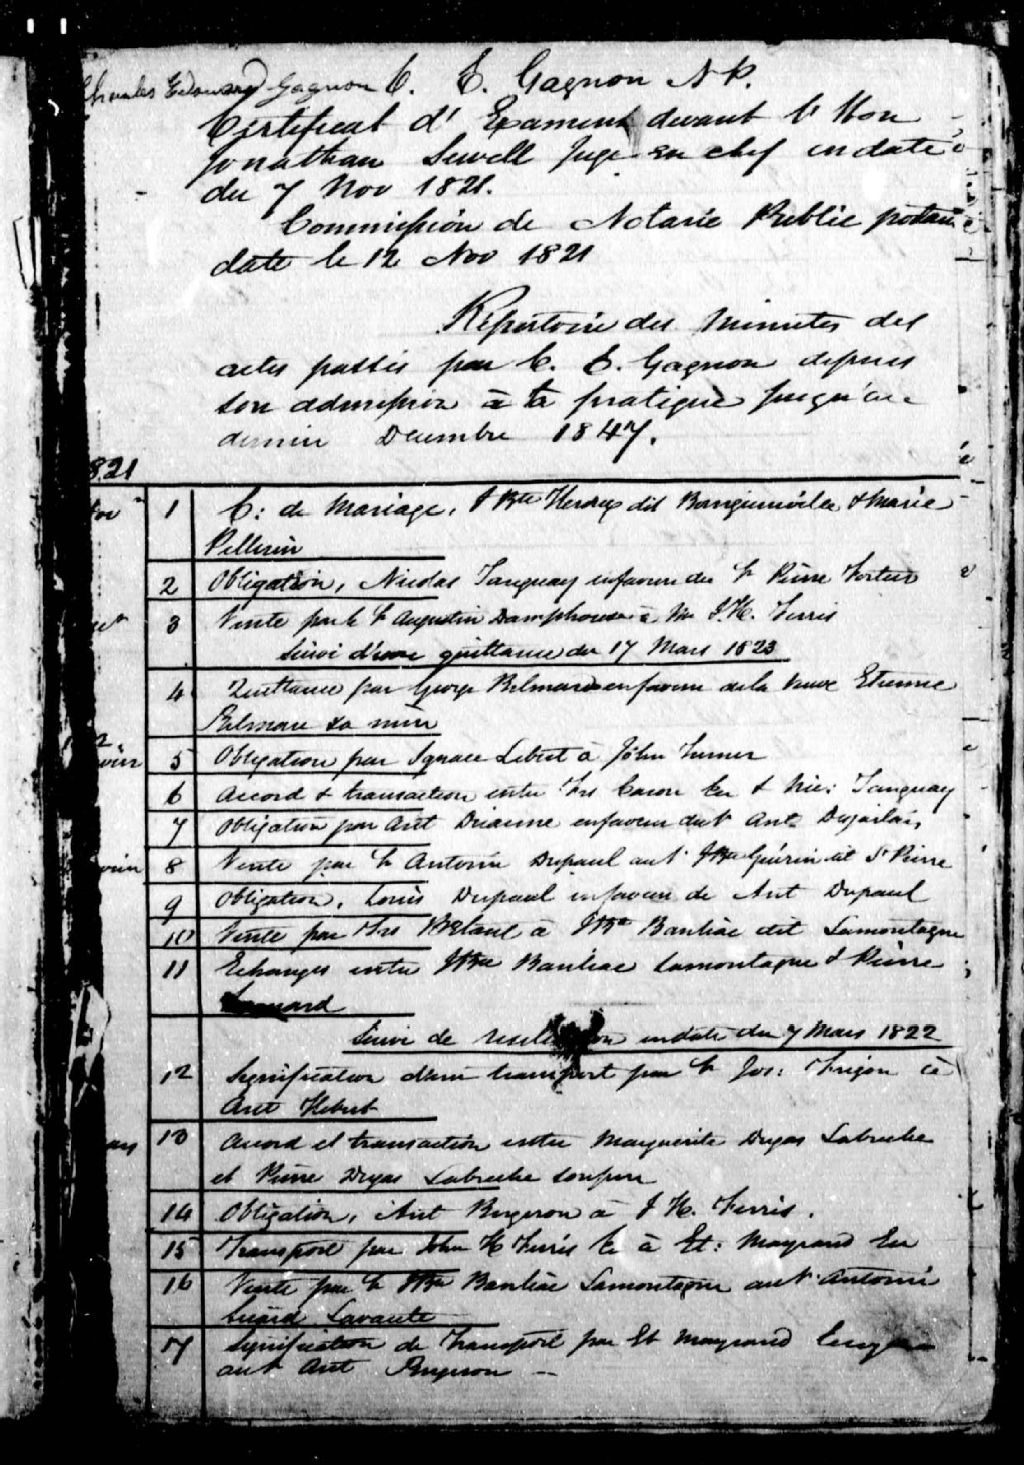 Charles Edouard Gagnon C. E. Gagnon N.P.
Certificat d' Examens devant l' Hon
Jonathan Sewell Juge en chef en date
du 7 Nov 1821.
Commission de Notarie Public portant
date le 12 Nov 1821
Répertoire des Minutes des
actes passés par C. E. Gagnon depuis
son admission à la pratique jusqu'au
dernier Décembre 1847.
821
1 C: de Mariage, J Bte Heroux dit Bourgainville & Marie
Pellerin
2 Obligation, Nicolas Tanguay en faveur du Sr Pierre Fortier
3 Vente par le Sr Augustin Damphouse à Mr J. H. Ferris
Suivi d'une quittance du 17 Mars 1823
4 Quittance par George Belmare en faveur de la veuve Etienne
Belmare sa mère
5 Obligation par Ignace Lebert à John Turner
6 Accord & transaction entre Frs Caron Eu & Nic: Tanguay
7 Obligation par Ant en faveur du Sr Ant Dujarlais,
8 Vente par Sr Antoine Dupaul au Sr J Bte Guérin dit St Pierre
9 Obligation, Louis Dupaul en faveur de Ant Dupaul
10 Vente par Frs à J Bte Banliac dit Lamontagne
11 Echanges entre J Bte Banliac Lamontagne & Pierre
Suivi de en date du 7 Mars 1822
12 Signification d'un transport par Sr Jos: Frigon à
Ant Hebert
13 Accord et transaction entre Marguerite Dugas Labreche
et Pierre Dugas Labreche son père
14 Obligation, Ant Bergeron à J H. Ferris.
15 Transport par John H Ferris Eu à Et: Mayrand Eu
16 Vente par Sr J Bte Banliac Lamontagne au Sr Antoine
Sicard Lavante
17 Signification de Transport par Et Mayrand
au Sr Ant Bergeron